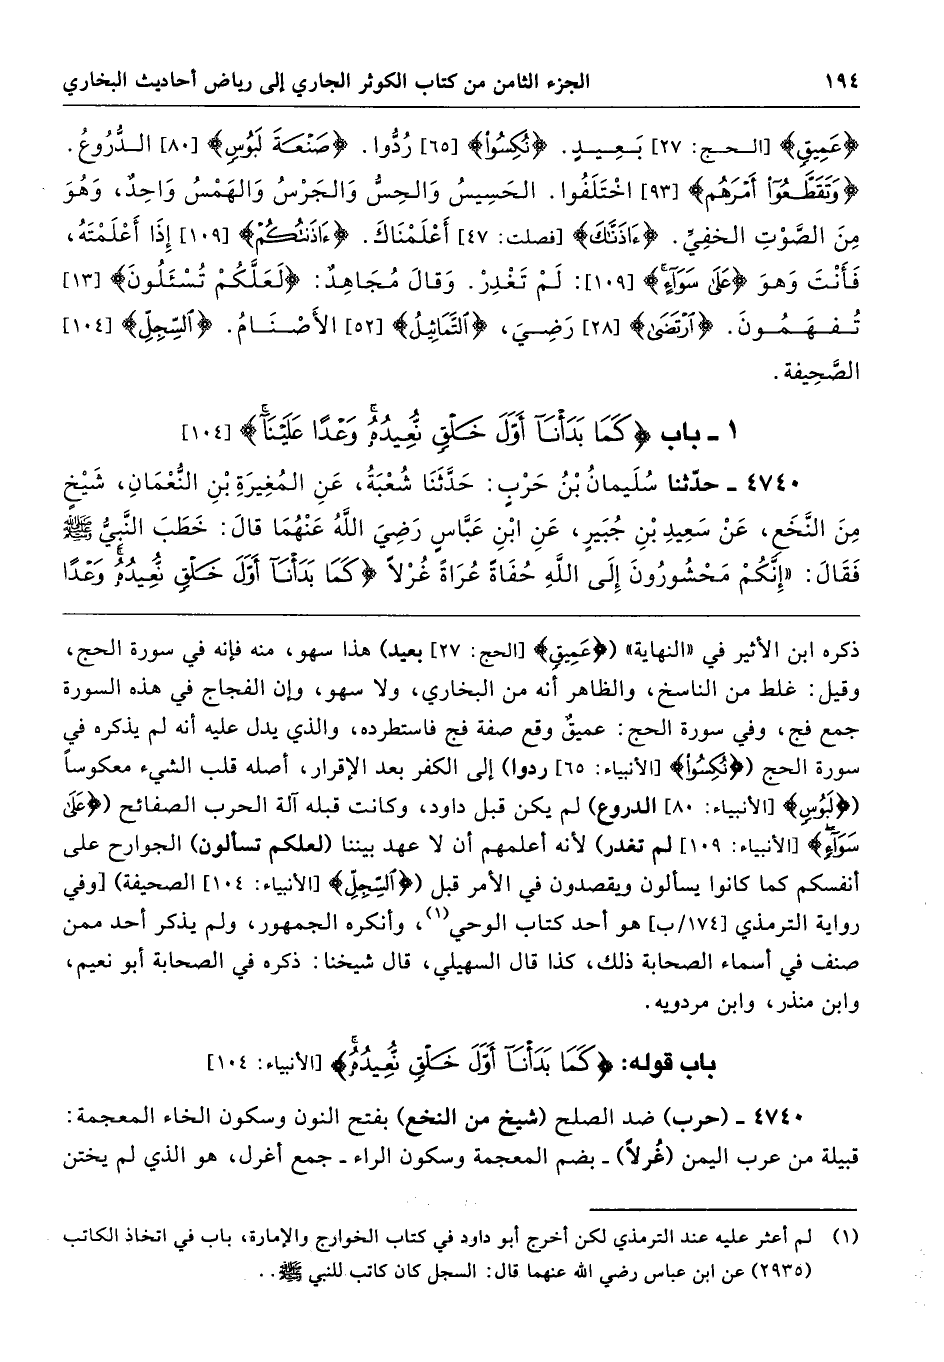 ١٩٤ الجزء الثامن من كتاب الكوثر الجاري إلى رياض أحاديث البخاري
﴿عَمِيقٍ﴾ [الحج: ٢٧] بَعِيدٍ. ﴿نُكِسُوا۟﴾ [٦٥] رُدُّوا. ﴿صَنْعَةَ لَبُوسٍ﴾ [٨٠] الدُّرُوعُ.
﴿وَتَقَطَّعُوٓا۟ أَمْرَهُم﴾ [٩٣] اخْتَلَفُوا. الحَسِيسُ وَالحِسُّ وَالجَرْسُ وَالهَمْسُ وَاحِدٌ، وَهُوَ
مِنَ الصَّوْتِ الخَفِيِّ. ﴿ءَاذَنَّٰكَ﴾ [فصلت: ٤٧] أَعْلَمْنَاكَ. ﴿ءَاذَنتُكُمْ﴾ [١٠٩] إِذَا أَعْلَمْتَهُ،
فَأَنْتَ وَهوَ ﴿عَلَىٰ سَوَآءٍ﴾ [١٠٩]: لَمْ تَغْدِرْ. وَقَالَ مُجَاهِدٌ: ﴿لَعَلَّكُمْ تُسْـَٔلُونَ﴾ [١٣]
تُفهَمُونَ. ﴿ٱرْتَضَىٰ﴾ [٢٨] رَضِيَ، ﴿ٱلتَّمَاثِيلُ﴾ [٥٢] الأَصْنَامُ. ﴿ٱلسِّجِلِّ﴾ [١٠٤]
الصَّحِيفة.
١ ـ باب ﴿كَمَا بَدَأْنَآ أَوَّلَ خَلْقٍ نُّعِيدُهُۥ وَعْدًا عَلَيْنَآ﴾ [١٠٤]
٤٧٤٠ ـ حدّثنا سُلَيمانُ بْنُ حَرْبٍ: حَدَّثَنَا شُعْبَةُ، عَنِ المُغِيرَةِ بْنِ النُّعْمَانِ، شَيْخٍ
مِنَ النَّخَعِ، عَنْ سَعِيدِ بْنِ جُبَيرٍ، عَنِ ابْنِ عَبَّاسٍ رَضِيَ اللَّهُ عَنْهُمَا قالَ: خَطَبَ النَّبِيُّ ﷺ
فَقَالَ: «إِنَّكُمْ مَحْشُورُونَ إِلَى اللَّهِ حُفَاةً عُرَاةً غُرْلاً ﴿كَمَا بَدَأْنَآ أَوَّلَ خَلْقٍ نُّعِيدُهُۥ وَعْدًا
ذكره ابن الأثير في «النهاية» (﴿عَمِيقٍ﴾ [الحج: ٢٧] بعيد) هذا سهو، منه فإنه في سورة الحج،
وقيل: غلط من الناسخ، والظاهر أنه من البخاري، ولا سهو، وإن الفجاج في هذه السورة
جمع فج، وفي سورة الحج: عميقٌ وقع صفة فج فاستطرده، والذي يدل عليه أنه لم يذكره في
سورة الحج (﴿نُكِسُوا۟﴾ [الأنبياء: ٦٥] ردوا) إلى الكفر بعد الإقرار، أصله قلب الشيء معكوساً
(﴿لَبُوسٍ﴾ [الأنبياء: ٨٠] الدروع) لم يكن قبل داود، وكانت قبله آلة الحرب الصفائح (﴿عَلَىٰ
سَوَآءٍ﴾ [الأنبياء: ١٠٩] لم تغدر) لأنه أعلمهم أن لا عهد بيننا (لعلكم تسألون) الجوارح على
أنفسكم كما كانوا يسألون ويقصدون في الأمر قبل (﴿ٱلسِّجِلِّ﴾ [الأنبياء: ١٠٤] الصحيفة) [وفي
رواية الترمذي [١٧٤/ب] هو أحد كتاب الوحي(١)، وأنكره الجمهور، ولم يذكر أحد ممن
صنف في أسماء الصحابة ذلك، كذا قال السهيلي، قال شيخنا: ذكره في الصحابة أبو نعيم،
وابن منذر، وابن مردويه.
باب قوله: ﴿كَمَا بَدَأْنَآ أَوَّلَ خَلْقٍ نُّعِيدُهُۥ﴾ [الأنبياء: ١٠٤]
٤٧٤٠ ـ (حرب) ضد الصلح (شيخ من النخع) بفتح النون وسكون الخاء المعجمة:
قبيلة من عرب اليمن (غُرلاً) ـ بضم المعجمة وسكون الراء ـ جمع أغرل، هو الذي لم يختن
(١) لم أعثر عليه عند الترمذي لكن أخرج أبو داود في كتاب الخوارج والإمارة، باب في اتخاذ الكاتب
(٢٩٣٥) عن ابن عباس رضي الله عنهما قال: السجل كان كاتب للنبي ﷺ..